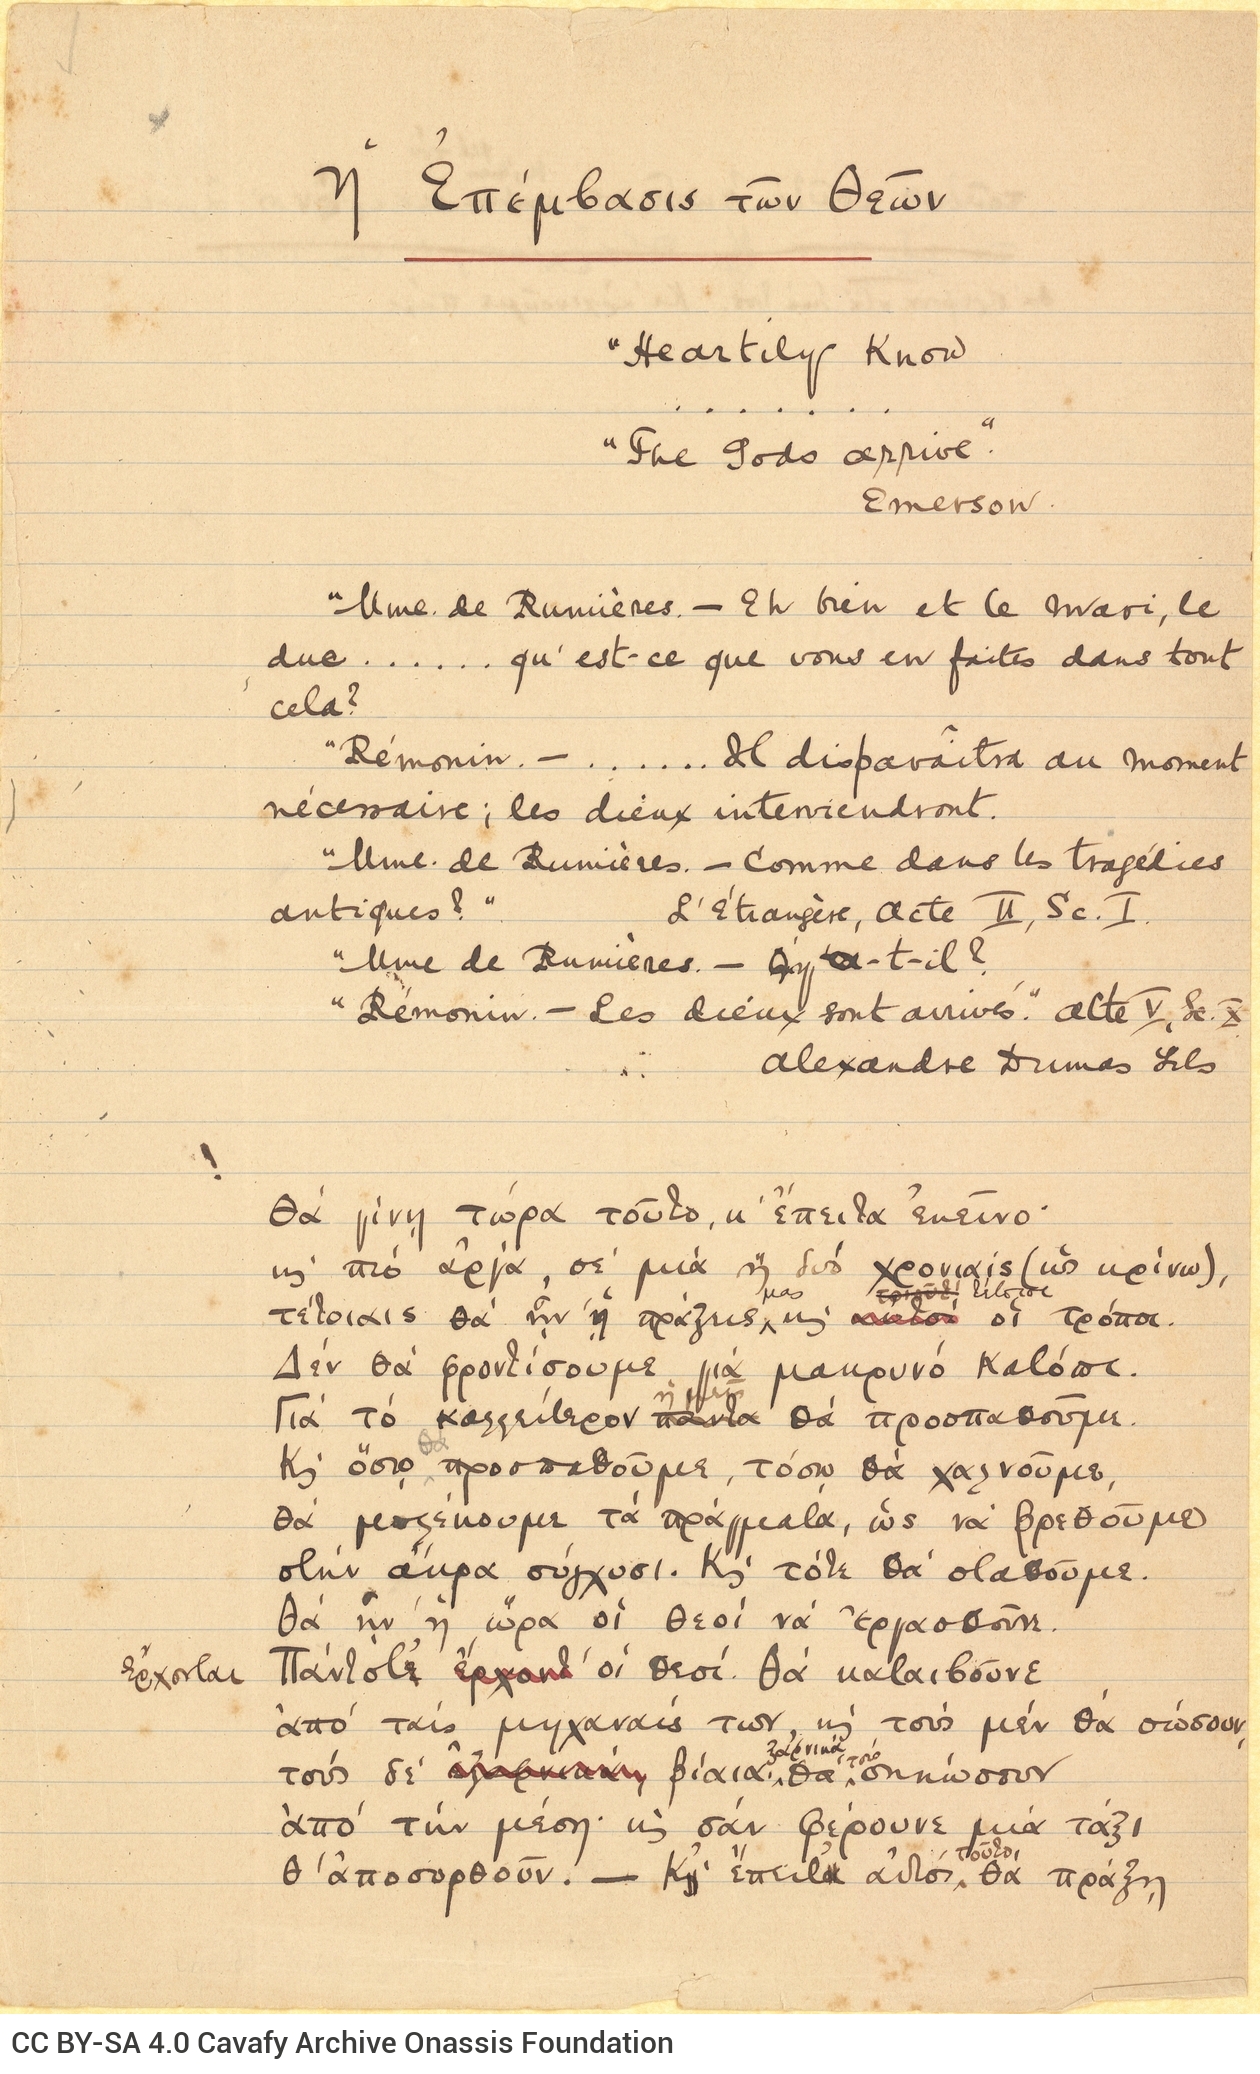 Ἡ Ἐπέμβασις τῶν Θεῶν
"Heartily know
. . . . . . .
"The Gods arrive".
Emerson.
"Mme. de Rumières. — Eh bien et le mari, le
duc . . . . . . qu'est-ce que vous en faites dans tout
cela?
"Rémonin. — . . . . . . Il disparaîtra au moment
nécessaire; les dieux interviendront.
"Mme. de Rumières. — Comme dans les tragédies
antiques?" L'Étrangère, Acte II, Sc. I.
"Mme de Rumières. — Qu'y a-t-il?
"Rémonin. — Les dieux sont arrivés." Acte V, Sc. X
Alexandre Dumas Fils
!
Θά γίνῃ τώρα τοῦτο, κ' ἔπειτα ἐκεῖνο·
κι' πιό ἀργά, σέ μιά ἤ δυό χρονιαίς (ὡς κρίνω),
μας τέτοιοι
τέτοιαις θά ᾖν' ἡ πράξεις, κι' αὐτοί οἱ τρόποι.
Δέν θά φροντίσουμε γιά μακρυνό κατόπι.
ἡμεῖς
Γιά τό καλλείτερον πάντα θά προσπαθοῦμε.
θά
Κι' ὅσῳ προσπαθοῦμε, τόσῳ θά χαλνοῦμε,
θά μπλέκουμε τά πράγματα, ὥς νά βρεθοῦμε
στήν ἄκρα σύγχυσι. Κι' τότε θά σταθοῦμε.
Θά ᾖν' ἡ ὥρα οἱ θεοί νά ἐργασθοῦνε.
ἔρχονται Πάντοτε ἔρχοντ' οἱ θεοί. Θά καταιβοῦνε
ἀπό ταίς μηχαναίς των, κι' τούς μέν θά σώσουν,
ξαφνικά τούς
τούς δέ βίαια, θά σηκώσουν
ἀπό τήν μέση· κι' σάν φέρουνε μιά τάξι
θ' ἀποσυρθοῦν. — Κι' ἔπειτα αὐτός
τοῦτο,
θά πράξῃ
CC BY-SA 4.0 Cavafy Archive Onassis Foundation